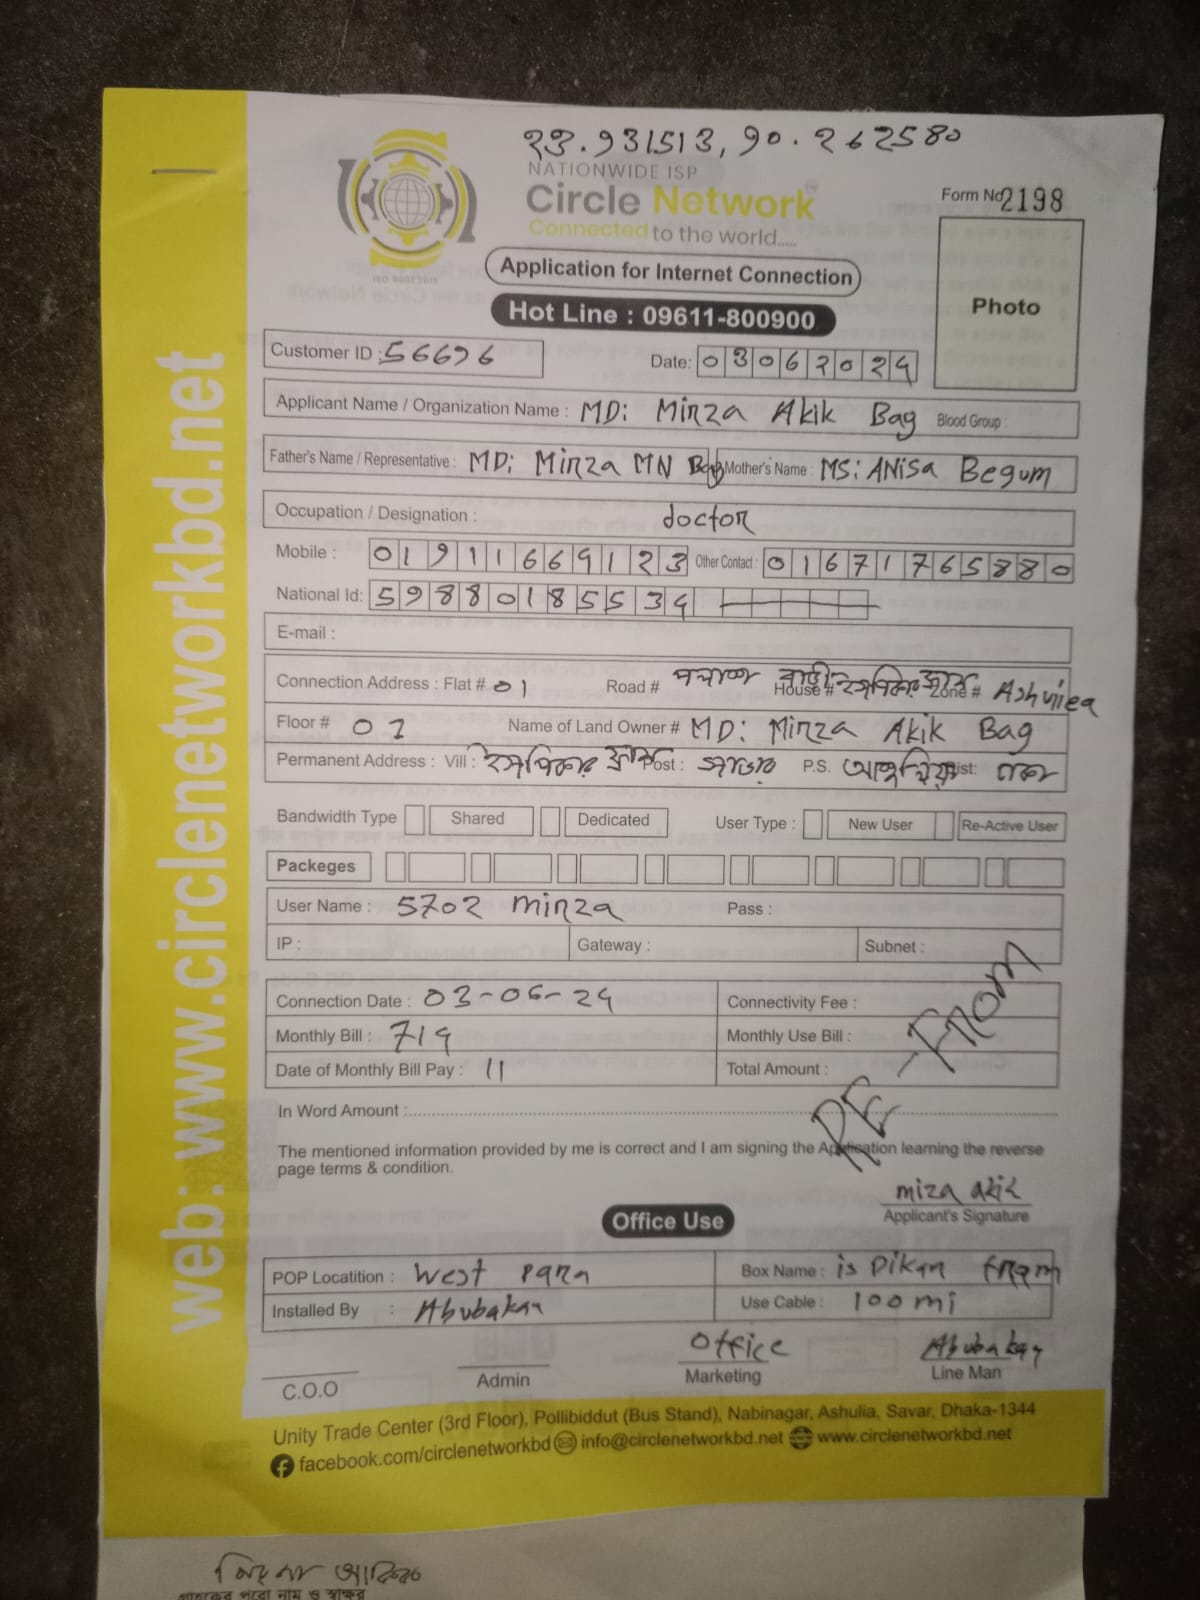 23.931513, 90.262580
NATIONWIDE ISP
Circle Network™
Connected to the world.....
ISO 9001:2015
Form No 2198
Application for Internet Connection
Photo
Hot Line : 09611-800900
Customer ID : 56676 Date: 03062024
Applicant Name / Organization Name : MD: Mirza Akik Bag Blood Group :
Father's Name / Representative : MD: Mirza MN Bag Mother's Name : MS: ANisa Begum
Occupation / Designation : doctor
Mobile : 01911669123 Other Contact : 01671765880
National Id: 5988018553 4
E-mail :
Connection Address : Flat # 01 Road # House # Zone # Ashuliea
Floor # 01 Name of Land Owner # MD: Mirza Akik Bag
Permanent Address : Vill : Post : সাভার P.S. আশুলিয়া Dist: ঢাকা
Bandwidth Type Shared Dedicated User Type : New User Re-Active User
Packeges
User Name : 5702 mirza Pass :
IP : Gateway : Subnet :
Connection Date : 03-06-24 Connectivity Fee :
Monthly Bill : 719 Monthly Use Bill :
Date of Monthly Bill Pay : 11 Total Amount :
RE-From
In Word Amount :
The mentioned information provided by me is correct and I am signing the Application learning the reverse
page terms & condition.
miza akik
Applicant's Signature
Office Use
POP Locatition : West para Box Name : is Dikan fram
Installed By : Abubakar Use Cable : 100 mi
Office Abubakar
C.O.O Admin Marketing Line Man
Unity Trade Center (3rd Floor), Pollibiddut (Bus Stand), Nabinagar, Ashulia, Savar, Dhaka-1344
facebook.com/circlenetworkbd info@circlenetworkbd.net www.circlenetworkbd.net
web: www.circlenetworkbd.net